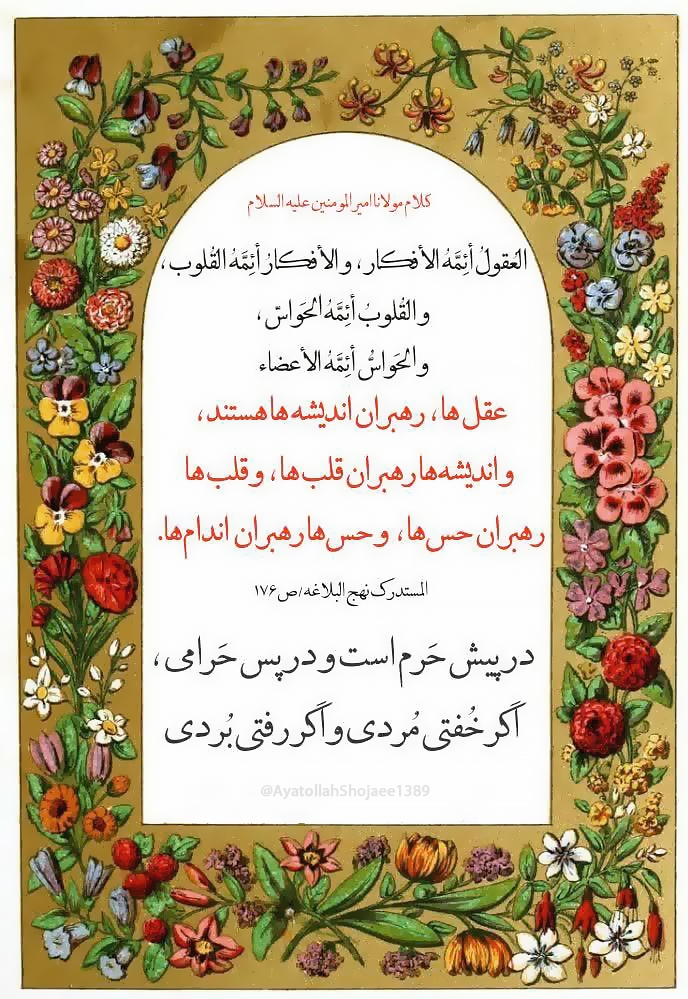 کلام مولانا امیرالمومنین علیه السلام
العُقولُ أئِمَّهُ الأفکار، والأفکارُ أئِمَّهُ القُلوب،
والقُلوبُ أئِمَّهُ الحَواسّ،
والحَواسُّ أئِمَّهُ الأعضاء
عقل‌ها، رهبران اندیشه‌ها هستند،
و اندیشه‌ها رهبران قلب‌ها، و قلب‌ها
رهبران حس‌ها، و حس‌ها رهبران اندام‌ها.
المستدرک نهج البلاغه/ص۱۷۶
در پیش حَرم است و در پس حَرامی،
اَگر خُفتی مُردی و اَگر رفتی بُردی
@AyatollahShojaee1389